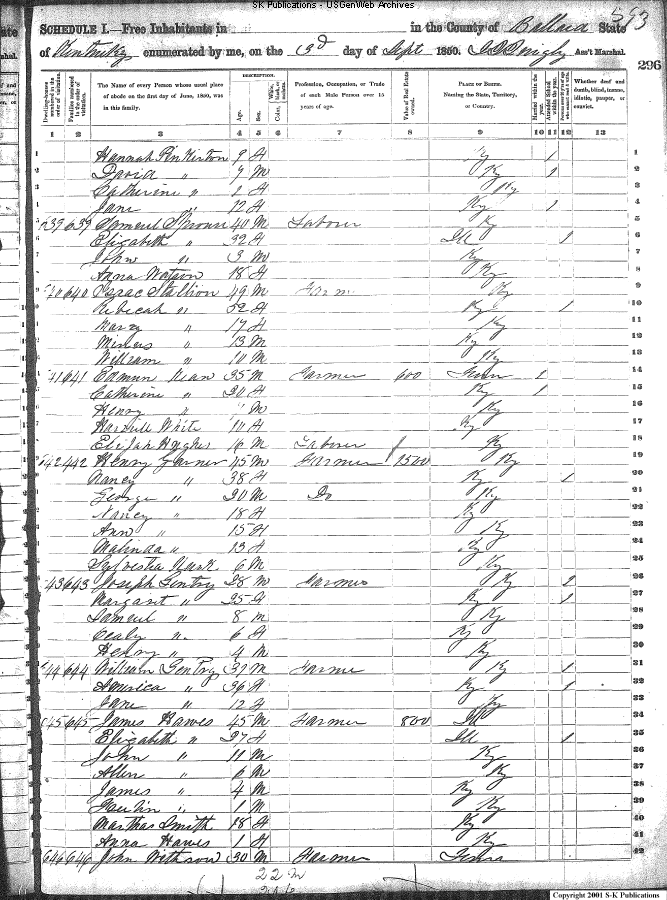 SK Publications - USGenWeb Archives
593
SCHEDULE I.—Free Inhabitants in in the County of Ballard State
of Kentucky enumerated by me, on the 13d day of Sept 1850. Ass't Marshal.
296
Dwelling-houses numbered in the order of visitation.
Families numbered in the order of visitation.
The Name of every Person whose usual place of abode on the first day of June, 1850, was in this family.
DESCRIPTION.
Age.
Sex.
White, black, or mulatto.
Color,
Profession, Occupation, or Trade of each Male Person over 15 years of age.
Value of Real Estate owned.
PLACE OF BIRTH. Naming the State, Territory, or Country.
Married within the year.
Attended School within the year.
Whether deaf and dumb, blind, insane, idiotic, pauper, or convict.
1 2 3 4 5 6 7 8 9 10 11 12 13
1 Hannah Pinkerton 9 f Ky 1 1
2 David " 7 M Ky 1 2
3 Catherine " 1 f Ky 3
4 Jane " 12 f Ky 1 4
5 639 639 Samuel 40 M Labour Ky 5
6 Elizabeth " 32 f Ill 1 6
7 John " 3 M Ky 7
8 Anna Watson 18 f Ky 8
9 640 640 Isaac Stallion 49 M Farm Ky 9
10 Rebecah " 52 f Ky 1 10
11 " 17 f Ky 11
12 " 13 M Ky 12
13 William " 10 M Ky 13
14 641 641 Edmun 35 M Farmer 600 Tenn 1 14
15 Catherine " 20 f Ky 1 15
16 Henry " M Ky 16
17 White 10 f Ky 17
18 Elijah Hughes 16 M Labour Ky 18
19 642 442 Henry Garner 45 M Farmer 1500 Ky 19
20 Nancy " 38 f Ky 1 20
21 George " 20 M Do Ky 21
22 Nancy " 18 f Ky 22
23 Ann " 15 f Ky 23
24 Malinda " 13 f Ky 24
25 6 M Ky 25
26 643 643 Joseph Gentry 28 M Farmer Ky 1 26
27 Margaret " 25 f Ky 1 27
28 Samuel " 8 m Ky 28
29 Cealy " 6 f Ky 29
30 Henry " 4 M Ky 30
31 644 644 William Gentry 37 M Farme Ky 1 31
32 America " 36 f Ky 1 32
33 Jane " 12 f Ky 33
34 645 645 James Hawes 45 M Farmer 800 Ill 34
35 Elizabeth " 27 f Ill 1 35
36 John " 11 M Ky 36
37 Allen " 6 M Ky 37
38 James " 4 M Ky 38
39 " 1 M Ky 39
40 Marthas Smith 18 f Ky 40
41 Anna Hawes 1 f Ky 41
42 646 646 John Withrow 30 M Farmer Tenn 42
22 M
Copyright 2001 S-K Publications